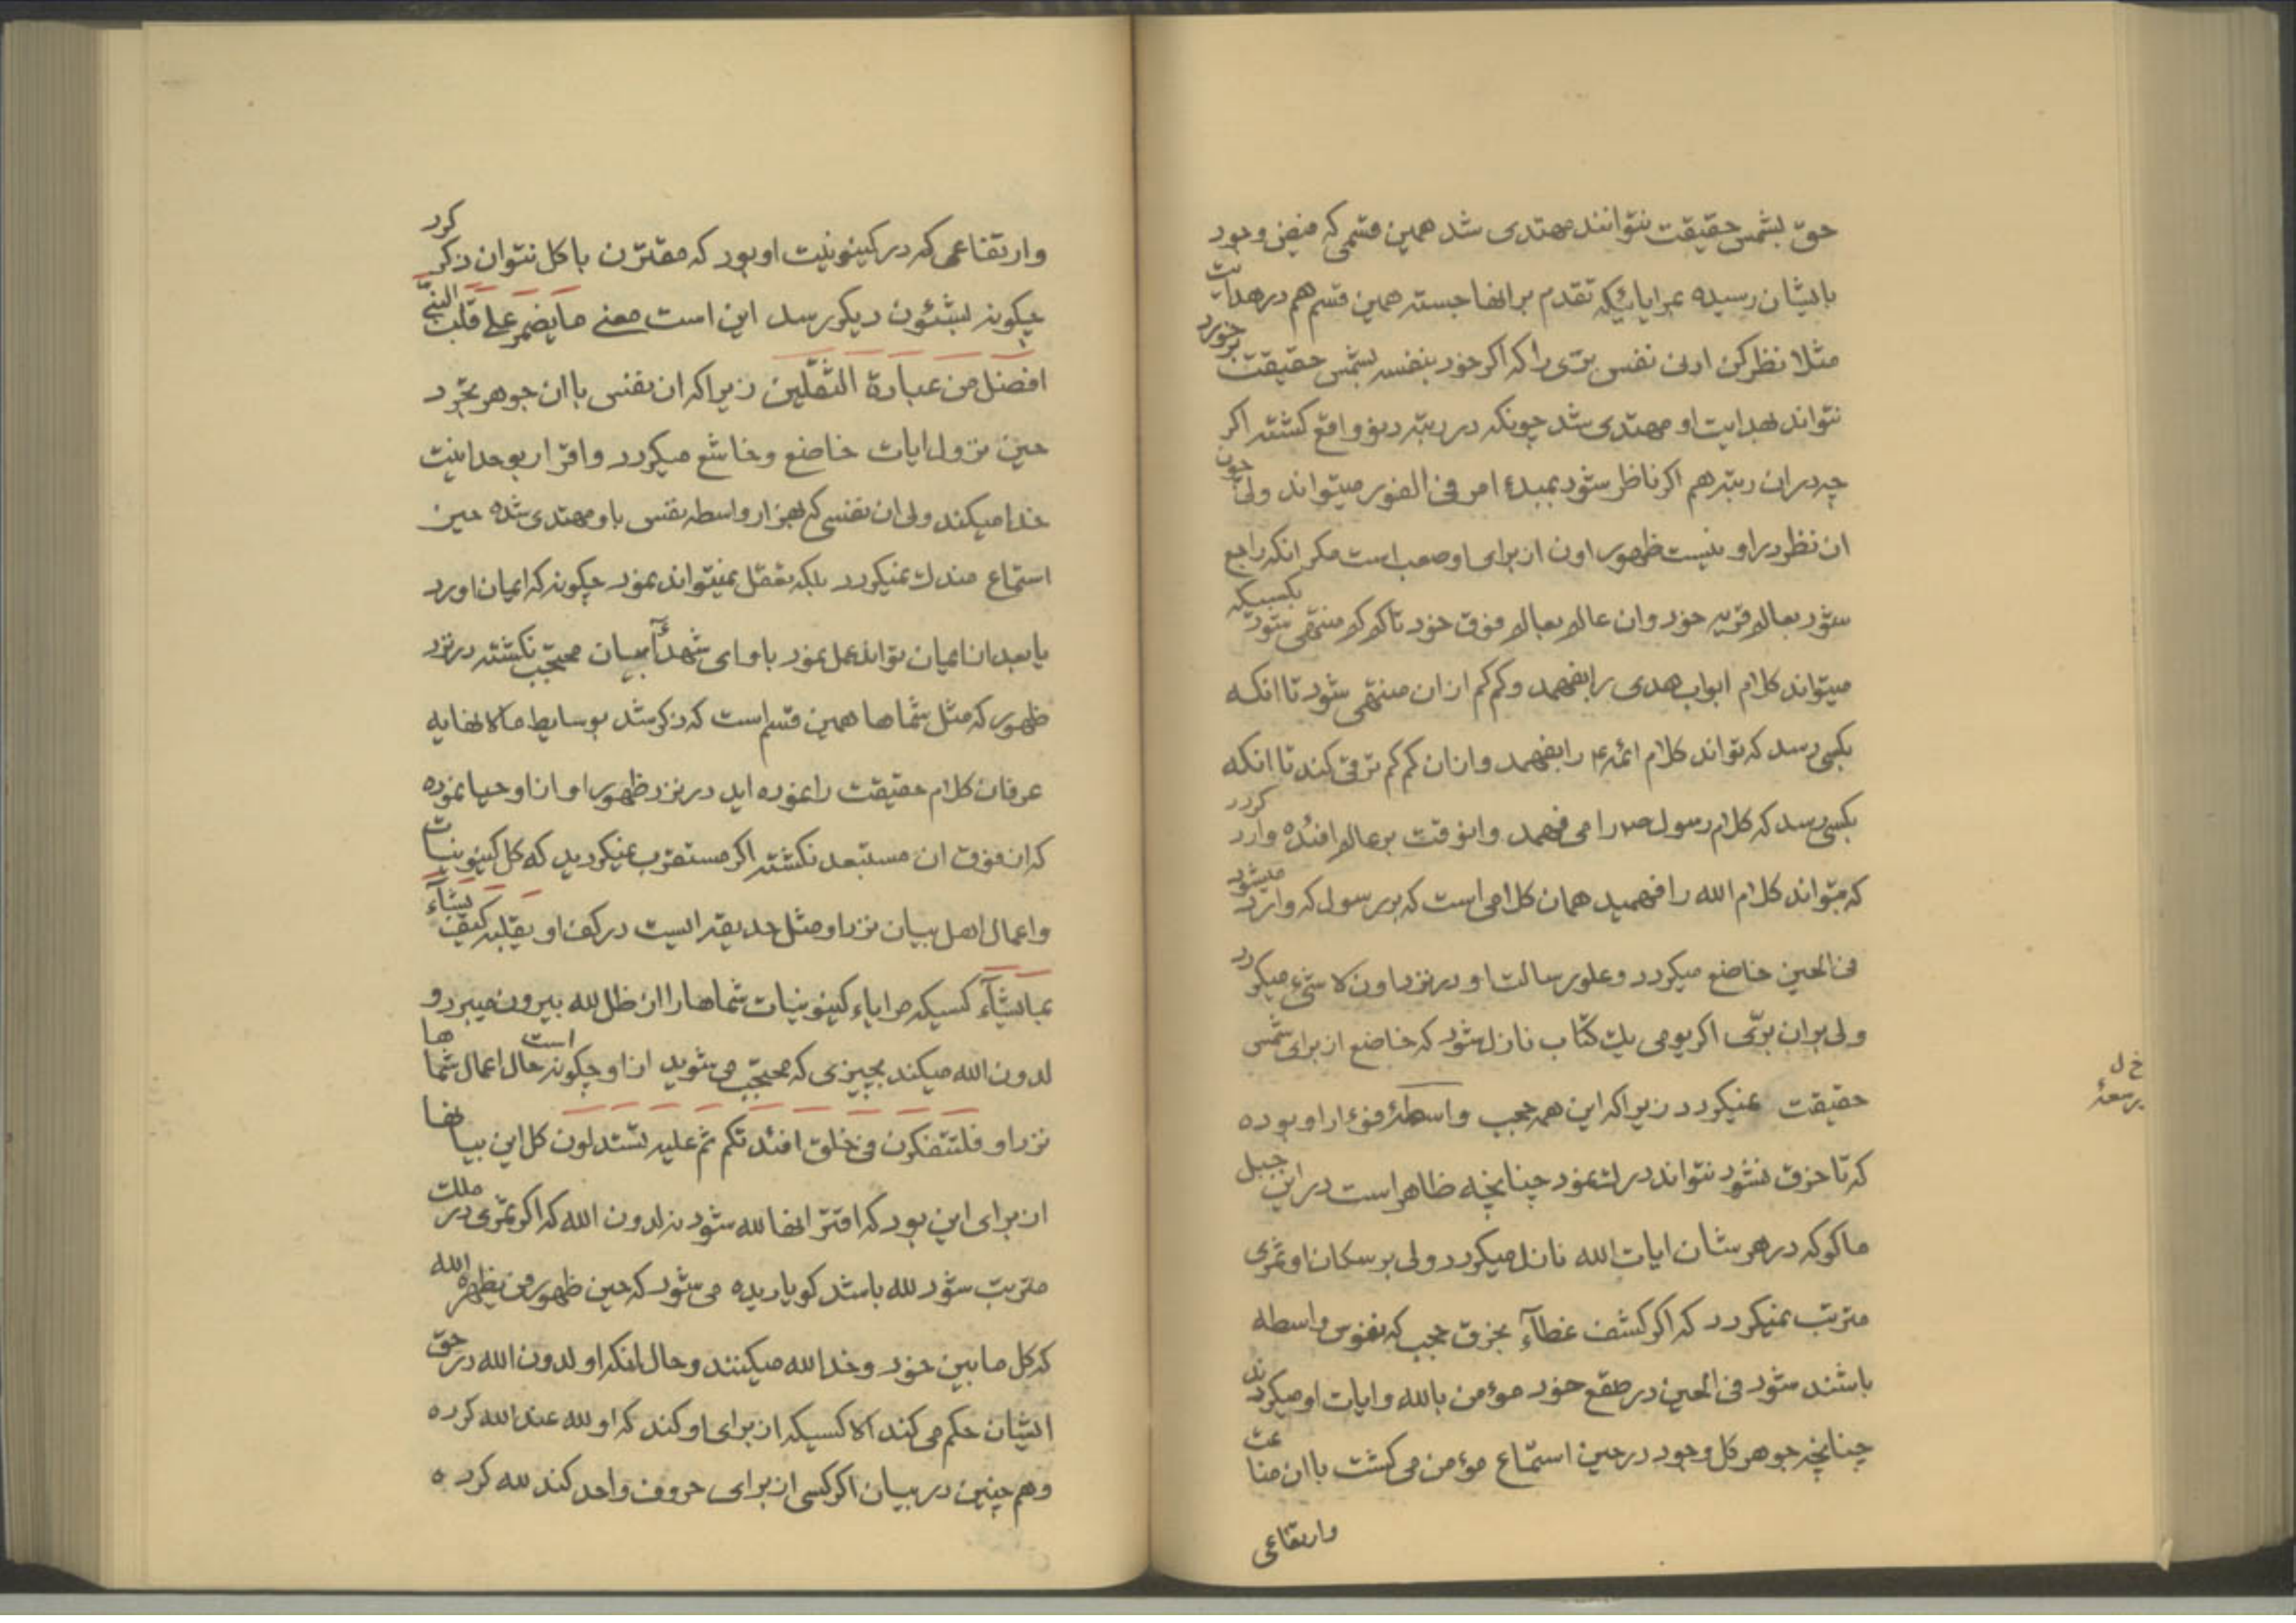 حق بشمس حقیقت نتوانند مهتدی شد همین قسمی که فیض وجود
بایشان رسیده بمرایائیکه تقدم بر انها جسته همین قسم هم در هدایت
مثلا نظر کن ادنی نفس برّی را که اکر خود بنفسه بشمس حقیقت برخورد
نتواند بهدایت او مهتدی شد چونکه در رتبه دنو واقع کشته اکر
چه در ان رتبه هم اکر ناظر شود بمبدء امر فی الفور میتواند ولی چون
ان نظر در او نیست ظهور اون از برای او صعب است مکر انکه راجع
شود بعالم قریه خود وان عالم بعالم فوق خود تا کم کم منتهی شود بکسیکه
میتواند کلام ابواب هدی را بفهمد و کم کم از ان منتهی شود تا انکه
بکسی رسد که تواند کلام ائمه ع را بفهمد و از ان کم کم ترقی کند تا انکه
بکسی رسد که کلام رسول ص را می فهمد و انوقت بر عالم افئده وارد کردد
که بتواند کلام الله را فهمید همان کلامی است که بر رسول که وارد میشود
فی الحین خاضع میکردد و علو رسالت او در نزد اون لا شیء میکردد
ولی بر ان برّی اکر یومی یک کتاب نازل شود که خاضع از برای شمس
حقیقت نمیکردد زیرا که این همه حجب واسطهٔ فوء اد او بوده
خ ل
بر سعهٔ
که تا خرق نشود نتواند درک نمود چنانچه ظاهر است در این جبل
ماکو که در هر شان ایات الله نازل میکردد ولی بر سکان او ثمری
مترتب نمیکردد که اکر کشف غطآء بخرق حجب که نفوس واسطه
باشند شود فی الحین در صقع خود موء من بالله و ایات او میکردند
چنانچه جوهر کل وجود در حین استماع موء من می کشت با ان مناعت
وارتفاعی
وارتفاعی که در کینونیت او بود که مقترن با کل نتوان ذکر کرد
چکونه بشئون دیکر رسد این است معنی ما یضمر علی قلب النبی
افضل من عبادة الثقلین زیرا که ان نفس با ان جوهر تجرد
حین نزول ایات خاضع و خاشع میکردد و اقرار بوحدانیت
خدا میکند ولی ان نفسی که بهزار واسطه نفس باو مهتدی شده حین
استماع مندک نمیکردد بلکه تعقل نمیتواند نمود چکونه که ایمان اورد
یا بعد از ایمان تواند عمل نمود باو ای شهدآء بیان محتجب نکشته در نزد
ظهور که مثل شماها همین قسم است که ذکر شد بوسایط ما لا نهایه
عرفان کلام حقیقت را نموده اید در نزد ظهور او از او حیا نموده
که از فوق ان مستبعد نکشته اکر مستقرب نمیکردید که کل کینونیات
و اعمال اهل بیان نزد او مثل حدیقه ایست در کف او یقلبه کیف یشآء
بما یشآء کسیکه مرایاء کینونیات شماها را از ظل لله بیرون میبرد و
لدون الله میکند بچیزی که محتجب می شوید از او چکونه است حال اعمال شماها
نزد او فلتتفکرن فی خلق افئدتکم ثم علیه تستدلون کل این بیانها
از برای این بود که اقترانها لله شود نه لدون الله که اکر ثمری در ملک
مترتب شود لله باشد کویا دیده می شود که حین ظهور من یظهره الله
که کل ما بین خود و خدا لله میکنند و حال انکه او لدون الله در حق
ایشان حکم می کند الا کسیکه از برای او کند که او لله عند الله کرده
و هم چنین در بیان اکر کسی از برای حروف واحد کند لله کرده